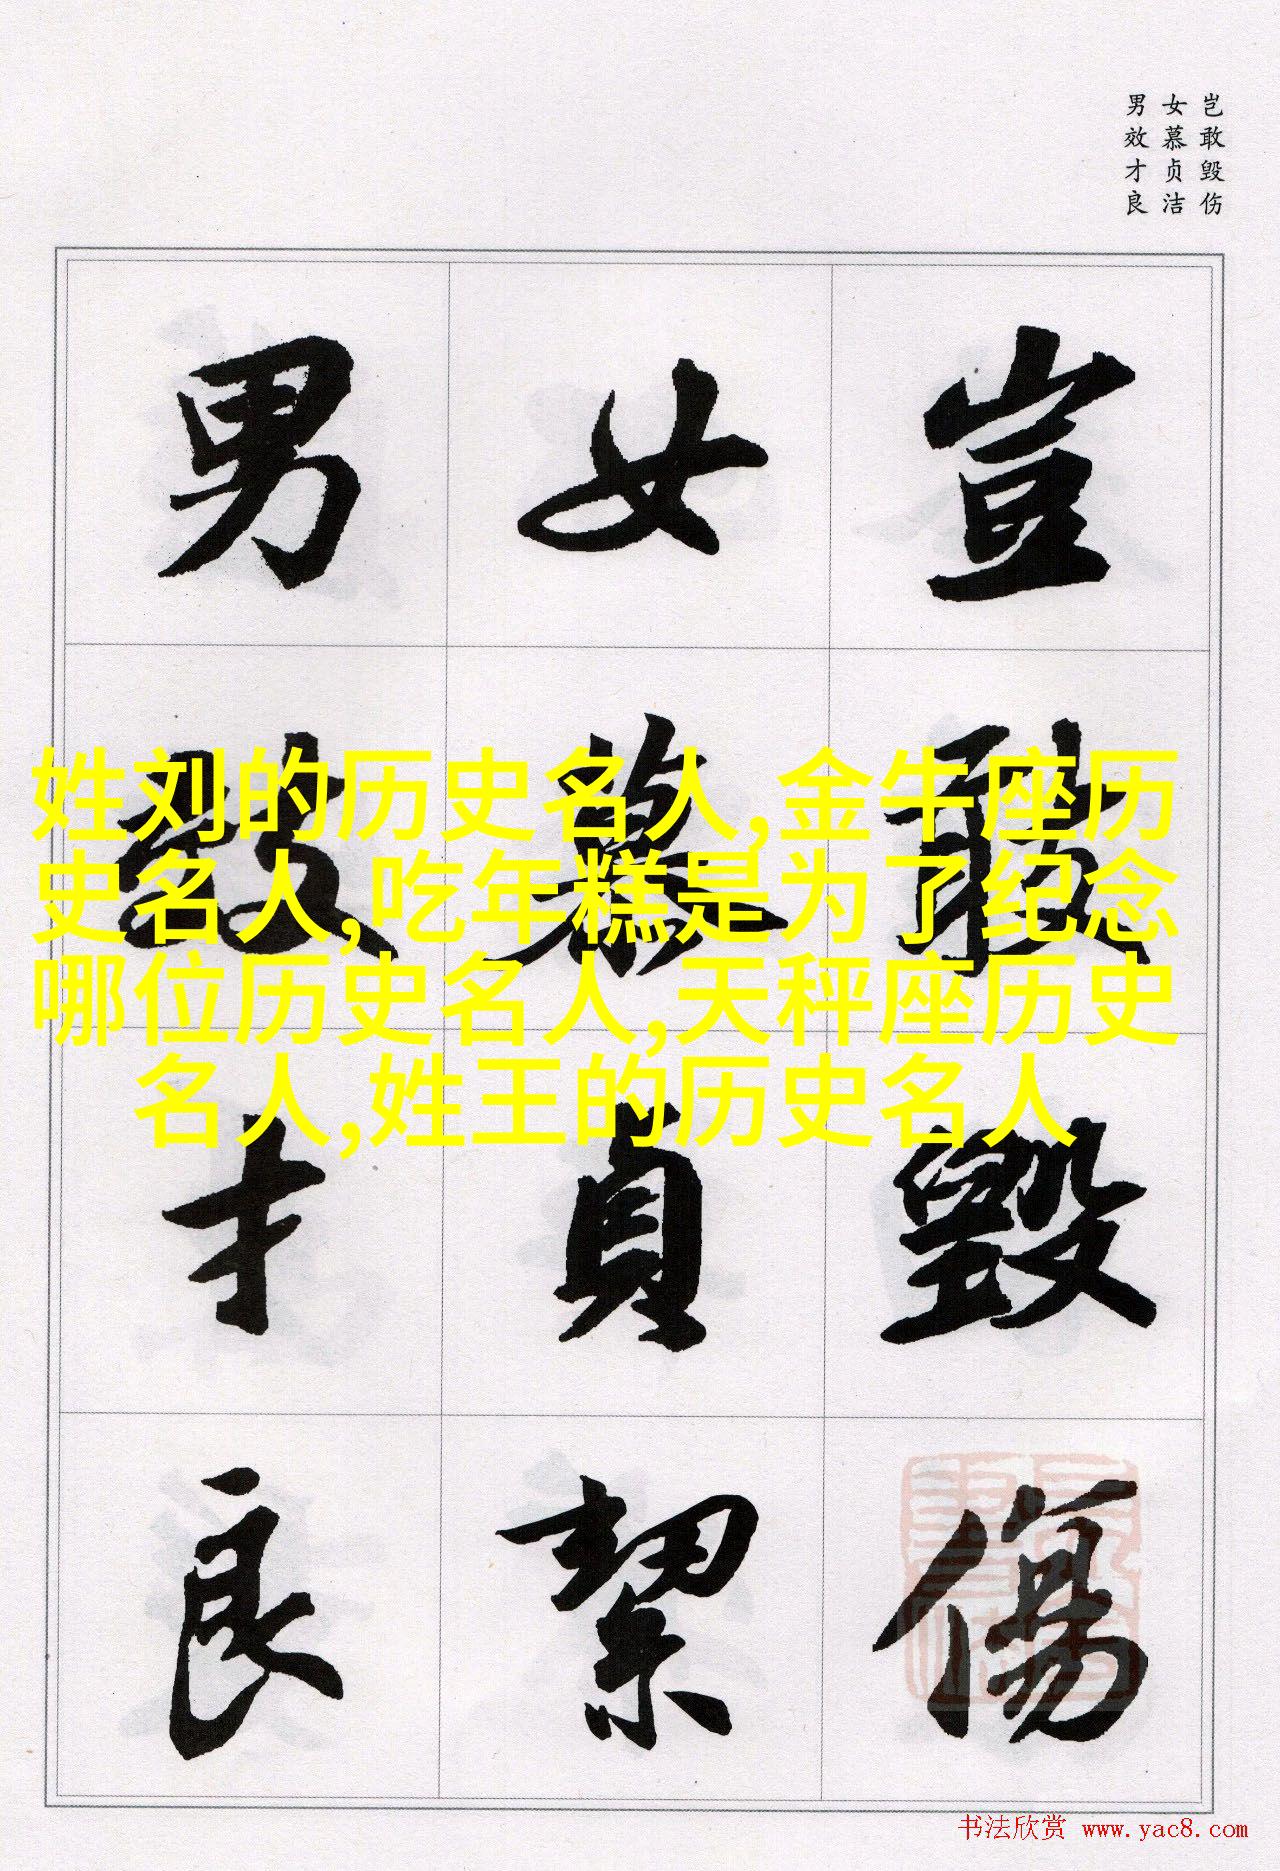 岂敢毁伤
女慕贞洁
男效才良
豈敢毀傷
女慕貞絜
男效才良
姓刘的历史名人,金牛座历
史名人,吃年糕是为了纪念
哪位历史名人,天秤座历史
名人,姓王的历史名人
书法欣赏 www.yac8.com